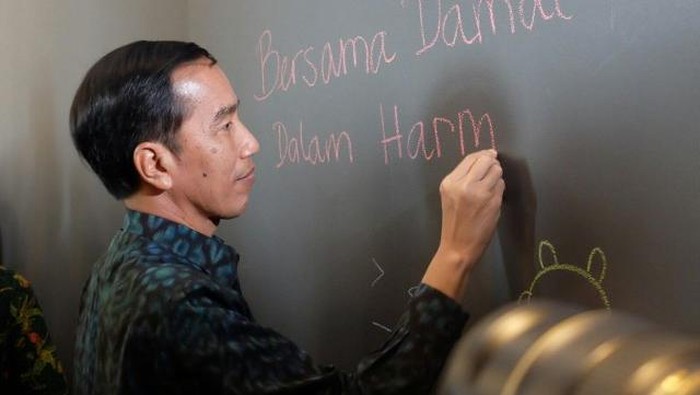 Bersama Damai
Dalam Harm